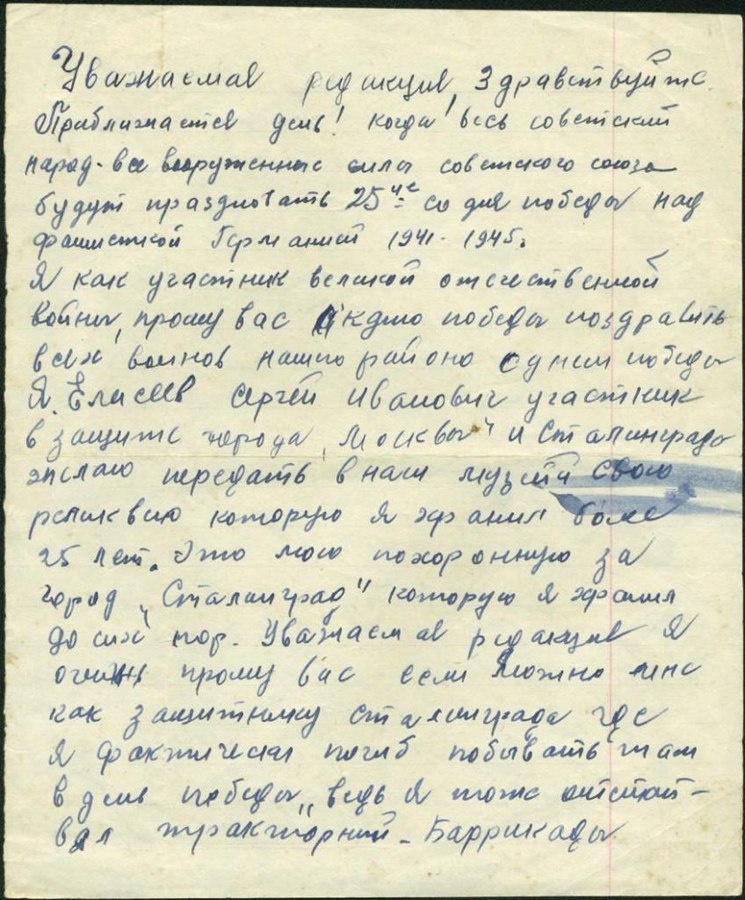 Уважаемая редакция, Здравствуйте.
Приближается день! когда весь советский
народ - все вооруженные силы советского союза
будут праздновать 25 ие со дня победы над
фашисткой Германией 1941 - 1945г.
Я как участник великой отечественной
войны, прошу вас к дню победы поздравить
всех воинов нашего района с днем победы
Я. Елисеев Сергей Иванович участник
в защите города „Москвы" и Сталинграда
желаю передать в наш музей свою
реликвию которую я хранил более
25 лет. Это мою похоронную за
город „Сталинград" которую я хранил
до сих пор. Уважаемая редакция я
очень прошу вас если можно мне
как защитнику сталинграда где
я фактически погиб побывать там
в день победы, ведь я тоже отстаи-
вал тракторний - Баррикады